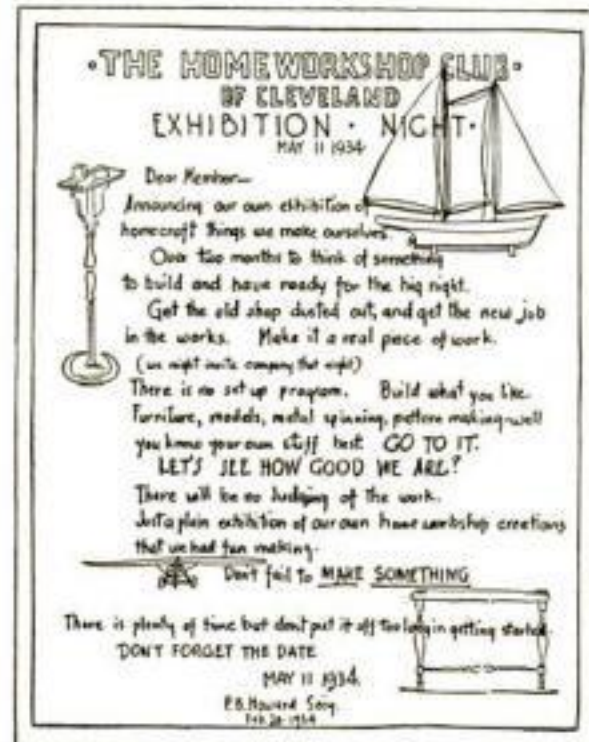 · THE HOMEWORKSHOP CLUB ·
OF CLEVELAND
EXHIBITION · NIGHT ·
MAY 11 1934
Dear Member—
Announcing our own exhibition of
homecraft things we make ourselves.
Over two months to think of something
to build and have ready for the big night.
Get the old shop dusted out, and get the new job
in the works. Make it a real piece of work.
(we might invite company that night)
There is no set up program. Build what you like.
Furniture, models, metal spinning, pattern making-well
you know your own stuff best GO TO IT.
LET'S SEE HOW GOOD WE ARE?
There will be no Judging of the work.
Just a plain exhibition of our own home workshop creations
that we had fun making.
Don't fail to MAKE SOMETHING
There is plenty of time but dont put it off too long in getting started.
DON'T FORGET THE DATE
MAY 11 1934.
P.B. Howard Secy.
Feb. 20 1934